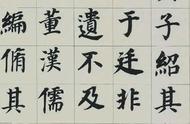 子紹其
于廷非
遺不及
董漢儒
編脩其